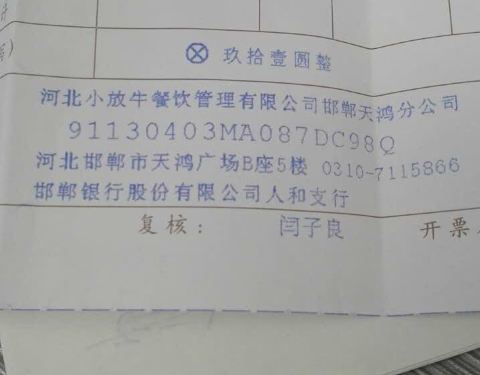 ⓧ 玖拾壹圆整
河北小放牛餐饮管理有限公司邯郸天鸿分公司
91130403MA087DC98Q
河北邯郸市天鸿广场B座5楼 0310-7115866
邯郸银行股份有限公司人和支行
复核： 闫子良 开票